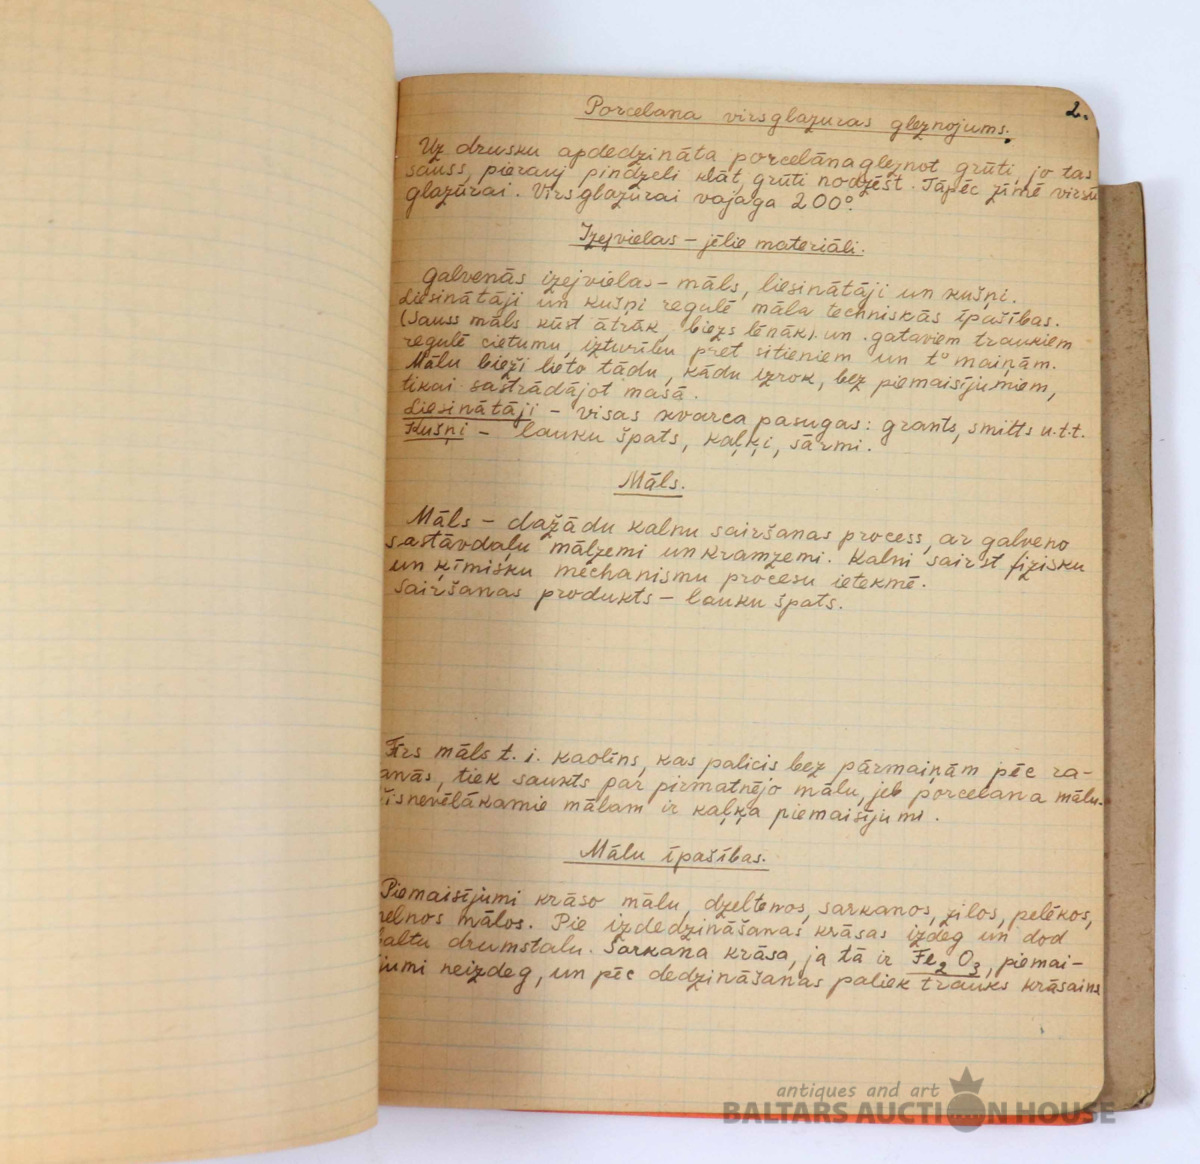 2.
Porcelana virsglazuras gleznojums.
Uz drusku apdedzināta porcelāna gleznot grūti, jo tas
sauss, pierauj pindzeli klāt, grūti nodzēst. Tāpēc zīmē virsū
glazūrai. Virsglazūrai vajaga 200°.
Izejvielas – jēlie materiāli.
Galvenās izejvielas – māls, liesinātāji un kušņi.
Liesinātāji un kušņi regulē māla techniskās īpašības.
(Sauss māls kūst ātrāk, biezs lēnāk) un gataviem traukiem
regulē cietumu, izturību pret sitieniem un t° maiņām.
Mālu bieži lieto tādu, kādu izrok, bez piemaisījumiem,
tikai sastrādājot masā.
Liesinātāji – visas kvarca pasugas: grants, smilts u.t.t.
Kušņi – lauku špats, kaļķi, sārmi.
Māls.
Māls – dažādu kalnu sairšanas process, ar galveno
sastāvdaļu mālzemi un kramzemi. Kalni sairst fizisku
un ķīmisku mechanismu procesu ietekmē.
Sairšanas produkts – lauku špats.
Tīrs māls t. i. kaolīns, kas palicis bez pārmaiņām pēc ra-
anās, tiek saukts par pirmatnējo mālu, jeb porcelana mālu.
mālam ir kaļķa piemaisījumi.
Mālu īpašības.
Piemaisījumi krāso mālu, dzeltenos, sarkanos, zilos, pelēkos,
melnos mālos. Pie izdedzināšanas krāsas izdeg un dod
baltu drumstalu. Sarkana krāsa, ja tā ir Fe₂O₃, piemai-
jumi neizdeg, un pēc dedzināšanas paliek trauks krāsains
antiques and art
BALTARS AUCTION HOUSE